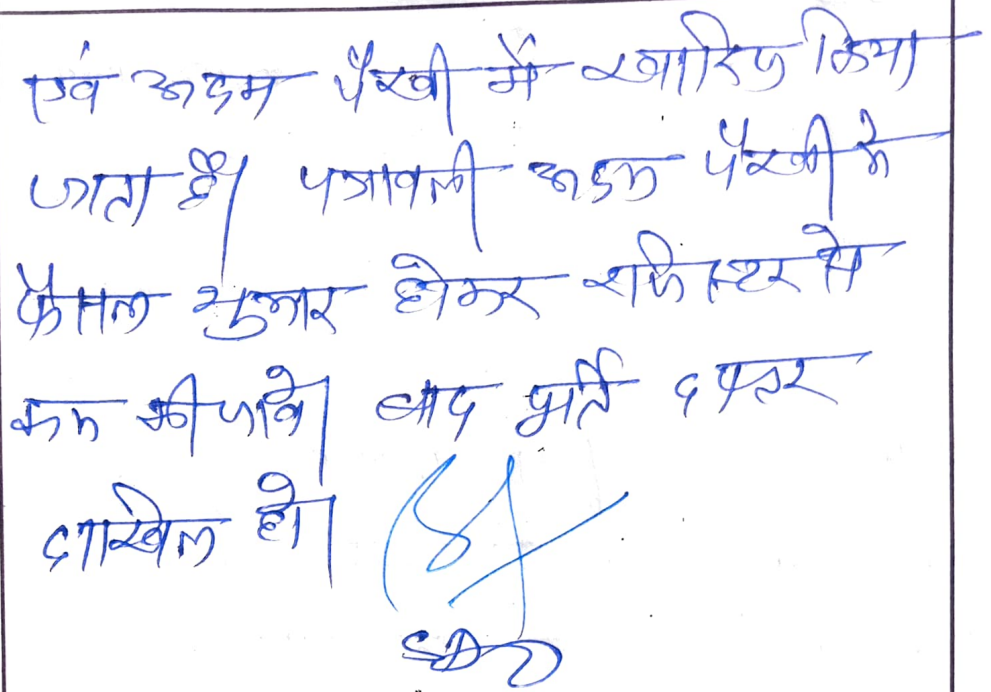 एवं अदम पैरवी में खारिज किया
जाता है। पत्रावली अदम पैरवी मे
फैसल शुमार होकर रजिस्टर से
कम की जावे। बाद पूर्ति दफ्तर
दाखिल हो।
SDM